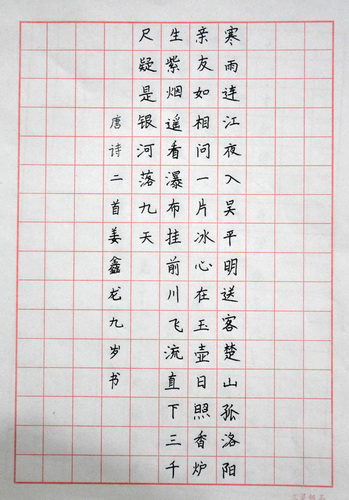 寒雨连江夜入吴平明送客楚山孤洛阳
亲友如相问一片冰心在玉壶日照香炉
生紫烟遥看瀑布挂前川飞流直下三千
尺疑是银河落九天
唐诗二首姜鑫龙九岁书